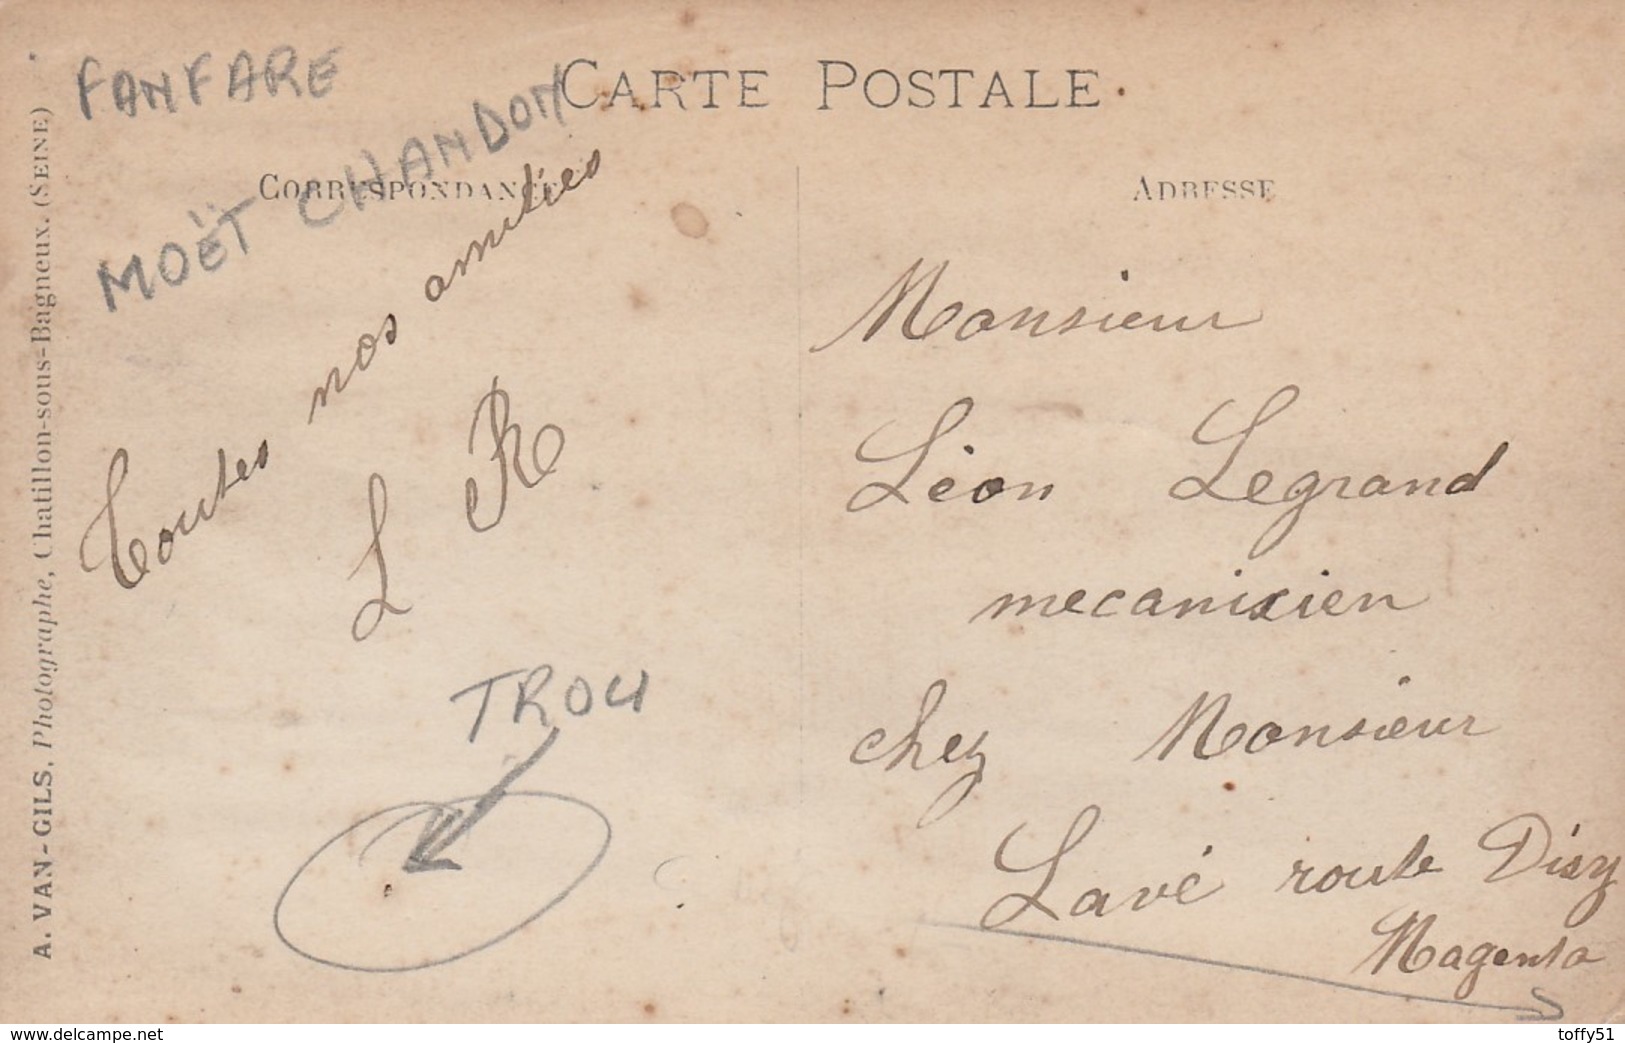 FANFARE
MOËT CHANDON
CARTE POSTALE
CORRESPONDANCE
ADRESSE
Toutes nos amitiés
L R
TROU
Monsieur
Léon Legrand
mecanicien
chez Monsieur
Lavé route Dizy
Magenta
A. VAN-GILS. Photographe, Chatillon-sous-Bagneux. (SEINE)
www.delcampe.net
toffy51